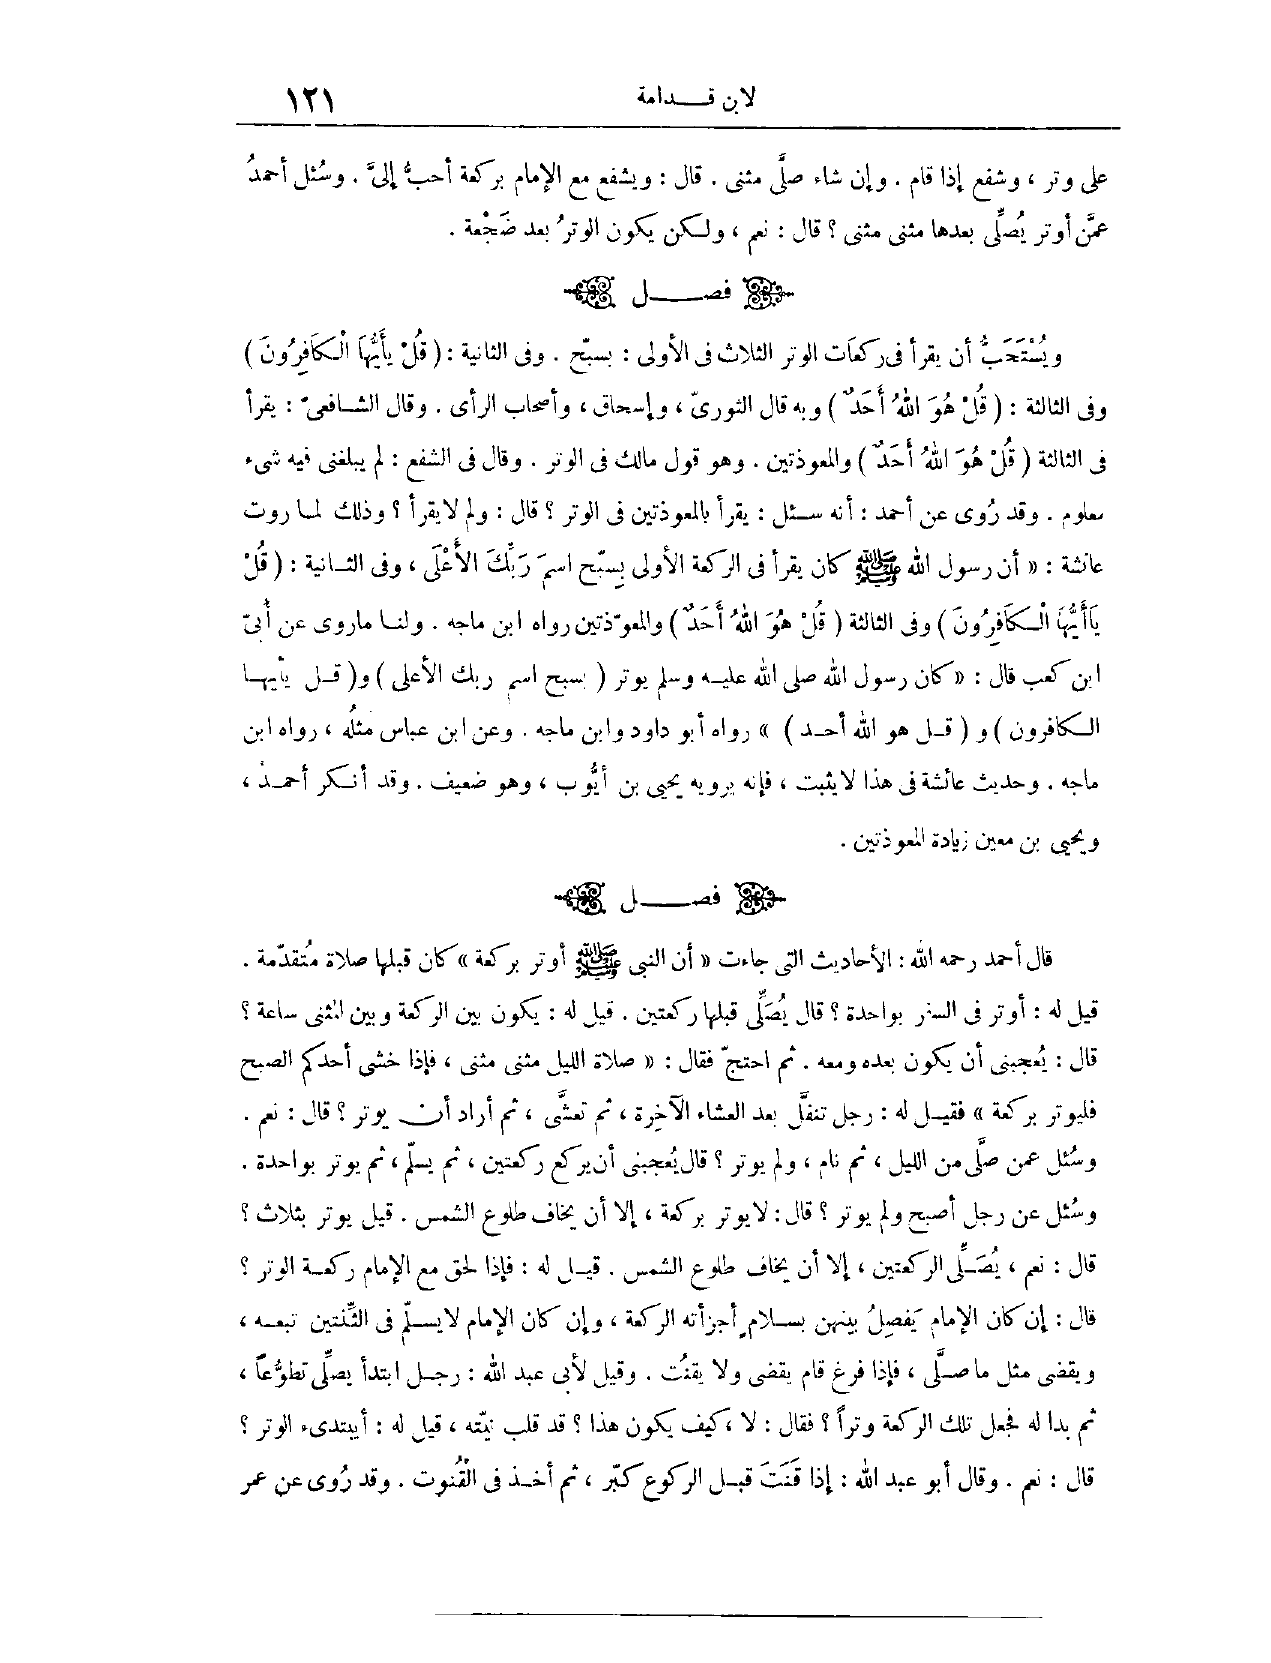 لابن قـدامة ١٢١
على وتر ، وشفع إذا قام . وإن شاء صلَّى مثنى . قال : ويشفع مع الإمام بركعة أحبُّ إلىَّ . وسُئل أحمدُ
عمَّن أوتر يُصلِّى بعدها مثنى مثنى ؟ قال : نعم ، ولـكن يكون الوترُ بعد ضَجْعة .
فصـــل
ويُسْتَحَبُّ أن يقرأ فى ركعَات الوتر الثلاث فى الأولى : بسبّح . وفى الثانية : ( قُلْ يأَيُّهَا الْـكَافِرُونَ )
وفى الثالثة : ( قُلْ هُوَ اللهُ أَحَدٌ ) وبه قال الثورىّ ، وإسحاق ، وأصحاب الرأى . وقال الشـافعىّ : يقرأ
فى الثالثة ( قُلْ هُوَ اللهُ أَحَدٌ ) والمعوذتين . وهو قول مالك فى الوتر . وقال فى الشفع : لم يبلغنى فيه شىء
معلوم . وقد رُوى عن أحمد : أنه سـئل : يقرأ بالمعوذتين فى الوتر ؟ قال : ولم لا يقرأ ؟ وذلك لمـا روت
عائشة : « أن رسول الله ﷺ كان يقرأ فى الركعة الأولى بِسبّح اسمَ رَبِّكَ الأَعْلَى ، وفى الثـانية : ( قُلْ
يَاأَيُّهَا الْـكَافِرُونَ ) وفى الثالثة ( قُلْ هُوَ اللهُ أَحَدٌ ) والمعوّذتين رواه ابن ماجه . ولنـا ماروى عن أُبىّ
ابن كعب قال : « كان رسول الله صلى الله عليـه وسلم يوتر ( بسبح اسم ربك الأعلى ) و( قـل يأيهـا
الـكافرون ) و ( قـل هو الله أحـد ) » رواه أبو داود وابن ماجه . وعن ابن عباس مثلُه ، رواه ابن
ماجه . وحديث عائشة فى هذا لا يثبت ، فإنه يرويه يحيى بن أيُّوب ، وهو ضعيف . وقد أنـكر أحمـدُ ،
ويحيى بن معين زيادة المعوذتين .
فصـــل
قال أحمد رحمه الله : الأحاديث التى جاءت « أن النبى ﷺ أوتر بركعة » كان قبلها صلاة مُتقدّمة .
قيل له : أوتر فى السفر بواحدة ؟ قال يُصَلِّى قبلها ركعتين . قيل له : يكون بين الركعة وبين المثنى ساعة ؟
قال : يُعجبنى أن يكون بعده ومعه . ثم احتجّ فقال : « صلاة الليل مثنى مثنى ، فإذا خشى أحدكم الصبح
فليوتر بركعة » فقيـل له : رجل تنفَّل بعد العشاء الآخِرة ، ثم تعشَّى ، ثم أراد أن يوتر ؟ قال : نعم .
وسُئل عمن صلَّى من الليل ، ثم نام ، ولم يوتر ؟ قال يُعجبنى أن يركع ركعتين ، ثم يسلّم ، ثم يوتر بواحدة .
وسُئل عن رجل أصبح ولم يوتر ؟ قال : لا يوتر بركعة ، إلا أن يخاف طلوع الشمس . قيل يوتر بثلاث ؟
قال : نعم ، يُصَلِّى الركعتين ، إلا أن يخاف طلوع الشمس . قيـل له : فإذا لحق مع الإمام ركعـة الوتر ؟
قال : إن كان الإمام يَفصِلُ بينهن بسـلامٍ أجزأته الركعة ، وإن كان الإمام لا يسـلّم فى الثّنتين تبعـه ،
ويقضى مثل ما صـلَّى ، فإذا فرغ قام يقضى ولا يقنُت . وقيل لأبى عبد الله : رجـل ابتدأ يصلِّى تطوُّعاً ،
ثم بدا له فجعل تلك الركعة وتراً ؟ فقال : لا ، كيف يكون هذا ؟ قد قلب نيّته ، قيل له : أيبتدىء الوتر ؟
قال : نعم . وقال أبو عبد الله : إذا قَنَتَ قبـل الركوع كبّر ، ثم أخـذ فى القُنوت . وقد رُوى عن عمر